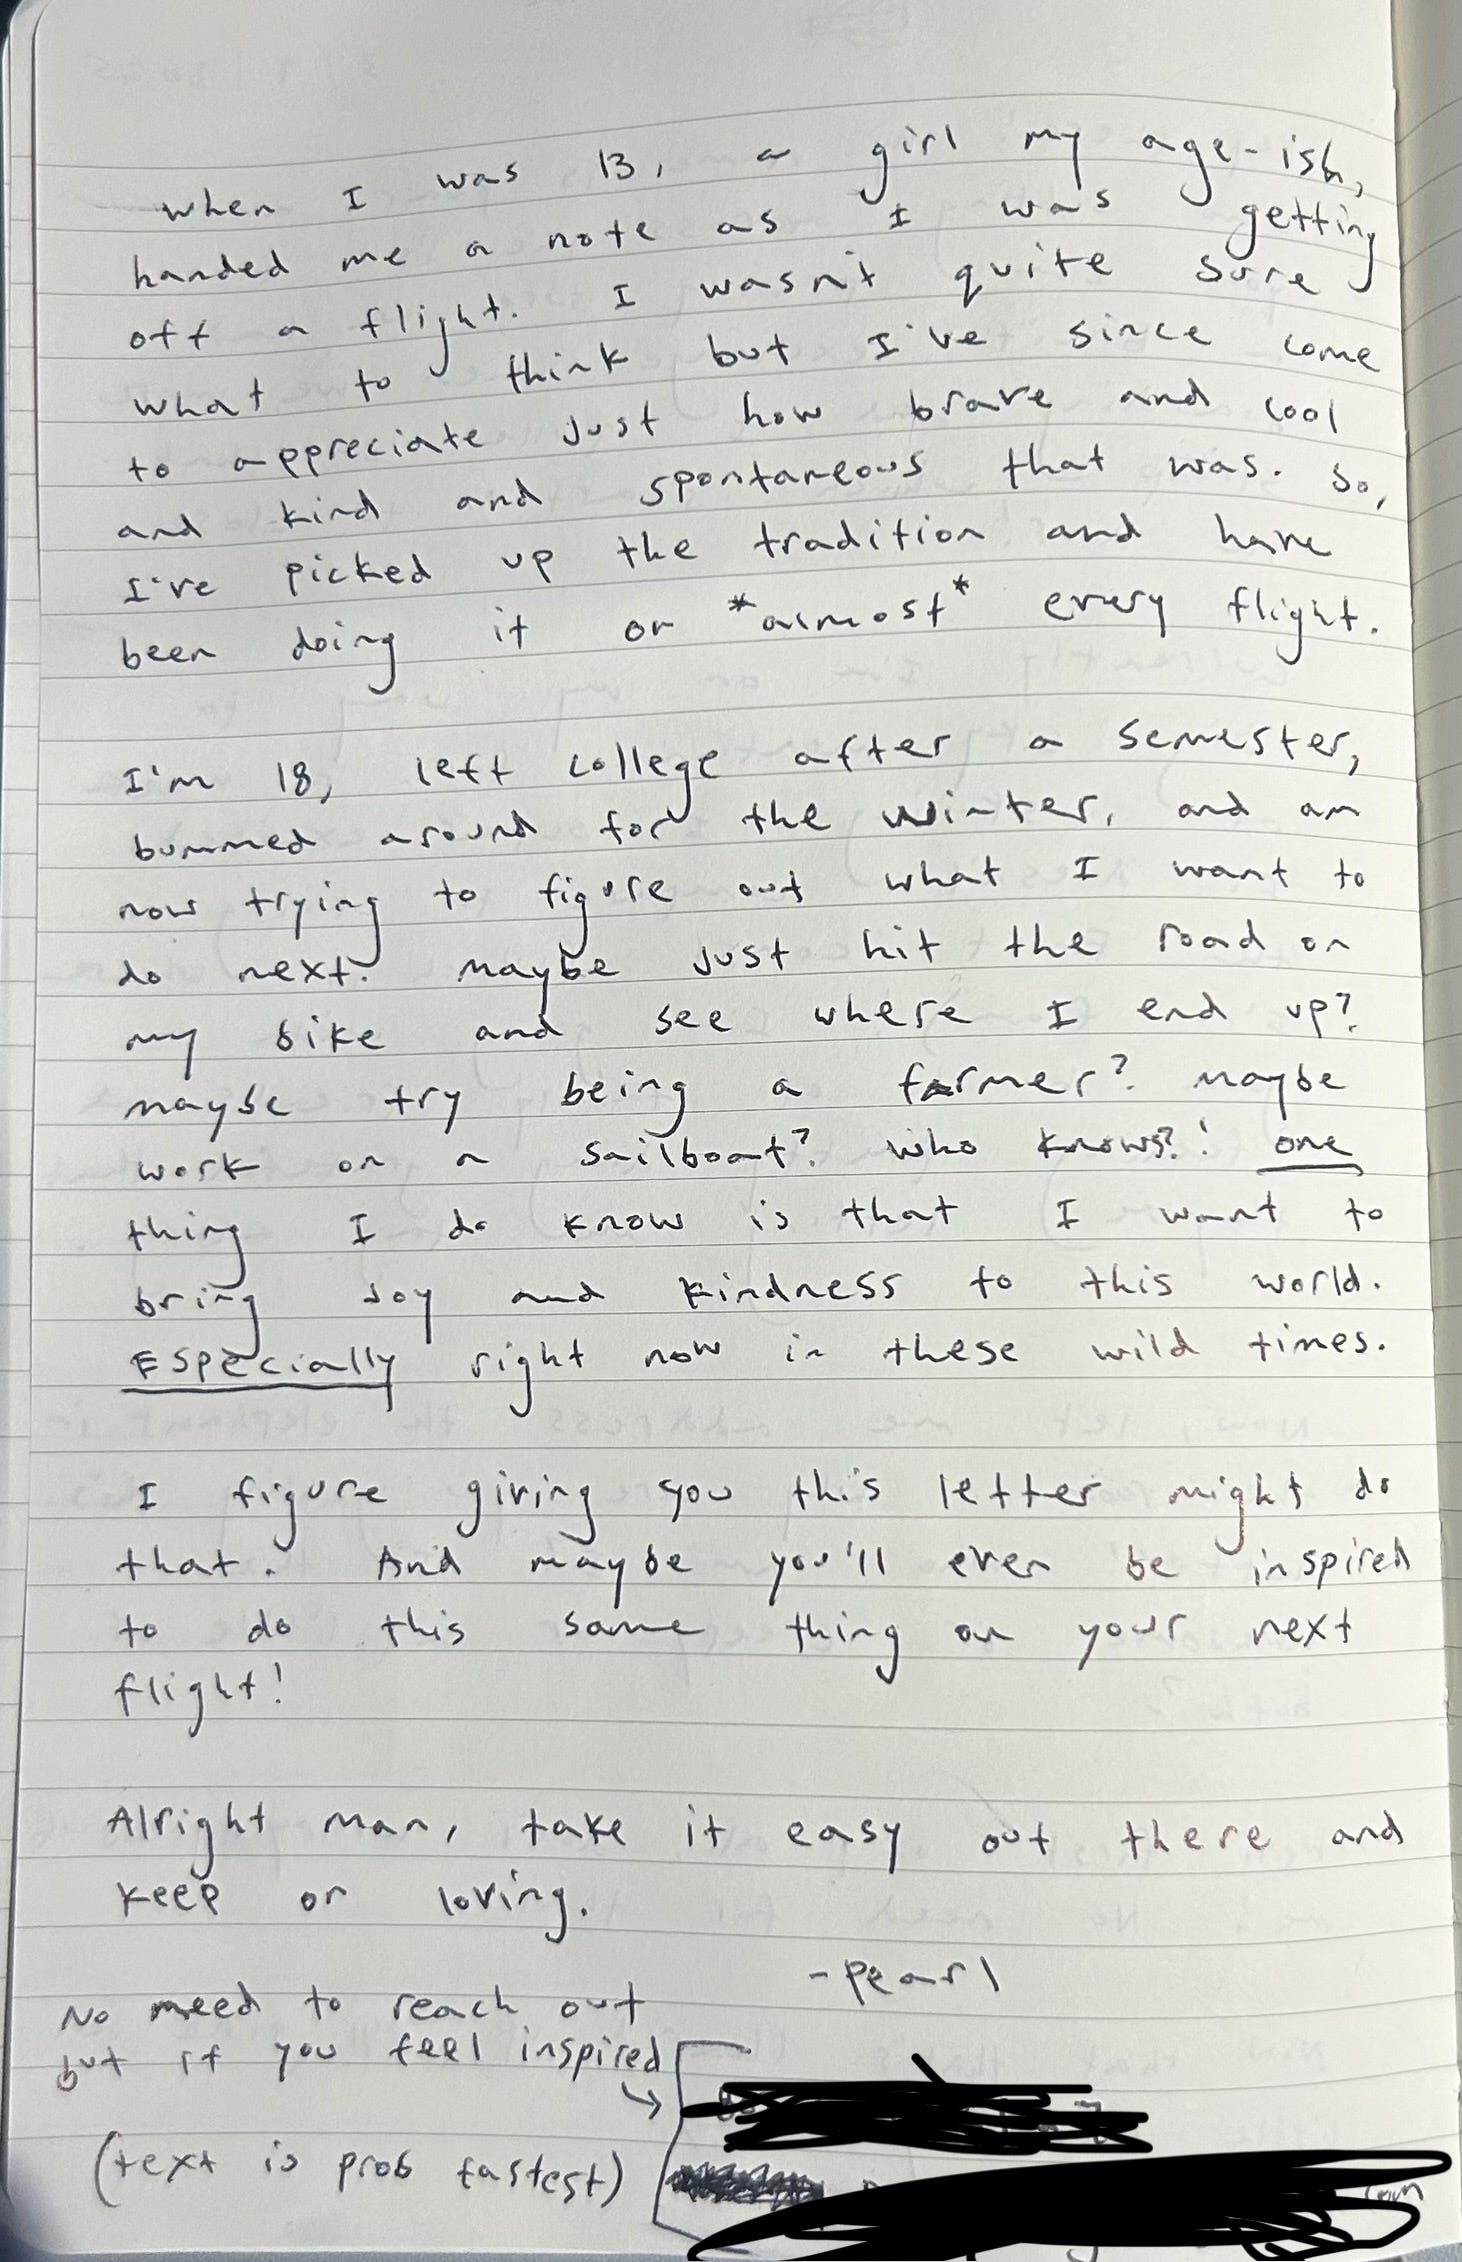 When I was 13, a girl my age-ish,
handed me a note as I was getting
off a flight. I wasn't quite sure
what to think but I've since come
to appreciate just how brave and cool
and kind and spontaneous that was. So,
I've picked up the tradition and have
been doing it on *almost* every flight.
I'm 18, left college after a semester,
bummed around for the winter, and am
now trying to figure out what I want to
do next. Maybe just hit the road on
my bike and see where I end up?
maybe try being a farmer? Maybe
work on a sailboat? Who knows?! One
thing I do know is that I want to
bring joy and kindness to this world.
Especially right now in these wild times.
I figure giving you this letter might do
that. And maybe you'll even be inspired
to do this same thing on your next
flight!
Alright man, take it easy out there and
keep on loving.
-Pearl
No need to reach out
but if you feel inspired
(text is prob fastest)